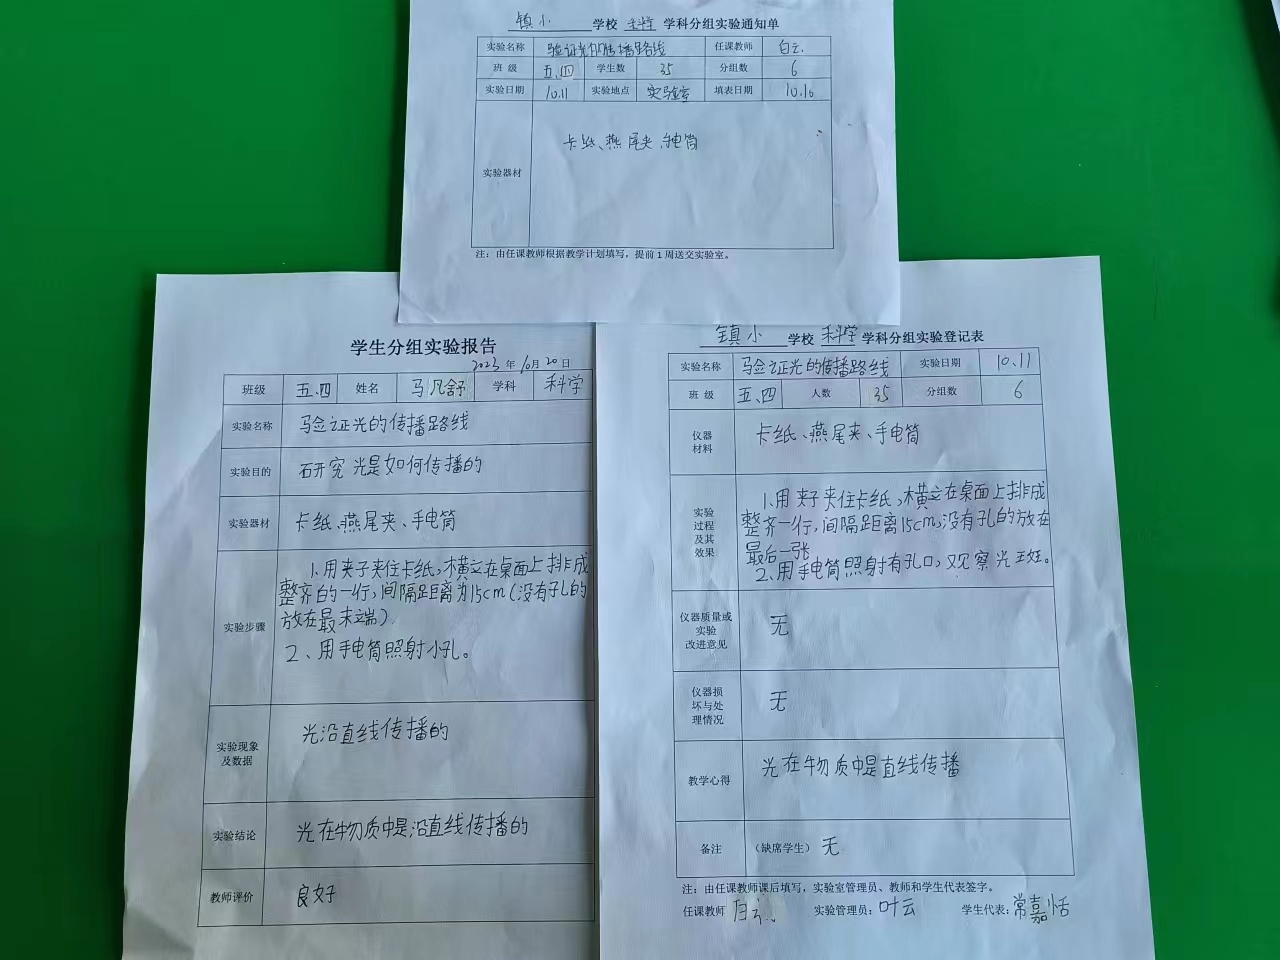 镇小 学校 科学 学科分组实验通知单
实验名称 验证光的传播路线 任课教师 白云
班 级 五、四 学生数 35 分组数 6
实验日期 10.11 实验地点 实验室 填表日期 10.10
实验器材 卡纸、燕尾夹、手电筒
注：由任课教师根据教学计划填写，提前1周送交实验室。
学生分组实验报告
2023 年 10月 20 日
班级 五.四 姓名 马凡舒 学科 科学
实验名称 验证光的传播路线
实验目的 研究光是如何传播的
实验器材 卡纸、燕尾夹、手电筒
实验步骤
1.用夹子夹住卡纸，横立在桌面上排成
整齐的一行，间隔距离为15cm（没有孔的
放在最末端）
2、用手电筒照射小孔。
实验现象
及数据
光沿直线传播的
实验结论 光在物质中是沿直线传播的
教师评价 良好
镇小 学校 科学 学科分组实验登记表
实验名称 验证光的传播路线 实验日期 10.11
班 级 五、四 人数 35 分组数 6
仪器
材料
卡纸、燕尾夹、手电筒
实验
过程
及其
效果
1.用夹子夹住卡纸，横立在桌面上排成
整齐一行，间隔距离15cm，没有孔的放在
最后一张
2、用手电筒照射有孔口，观察光斑。
仪器质量或
实验
改进意见
无
仪器损
坏与处
理情况
无
教学心得 光在物质中是直线传播
备注 （缺席学生） 无
注：由任课教师课后填写，实验室管理员、教师和学生代表签字。
任课教师 白云 实验管理员：叶云 学生代表：常嘉恬